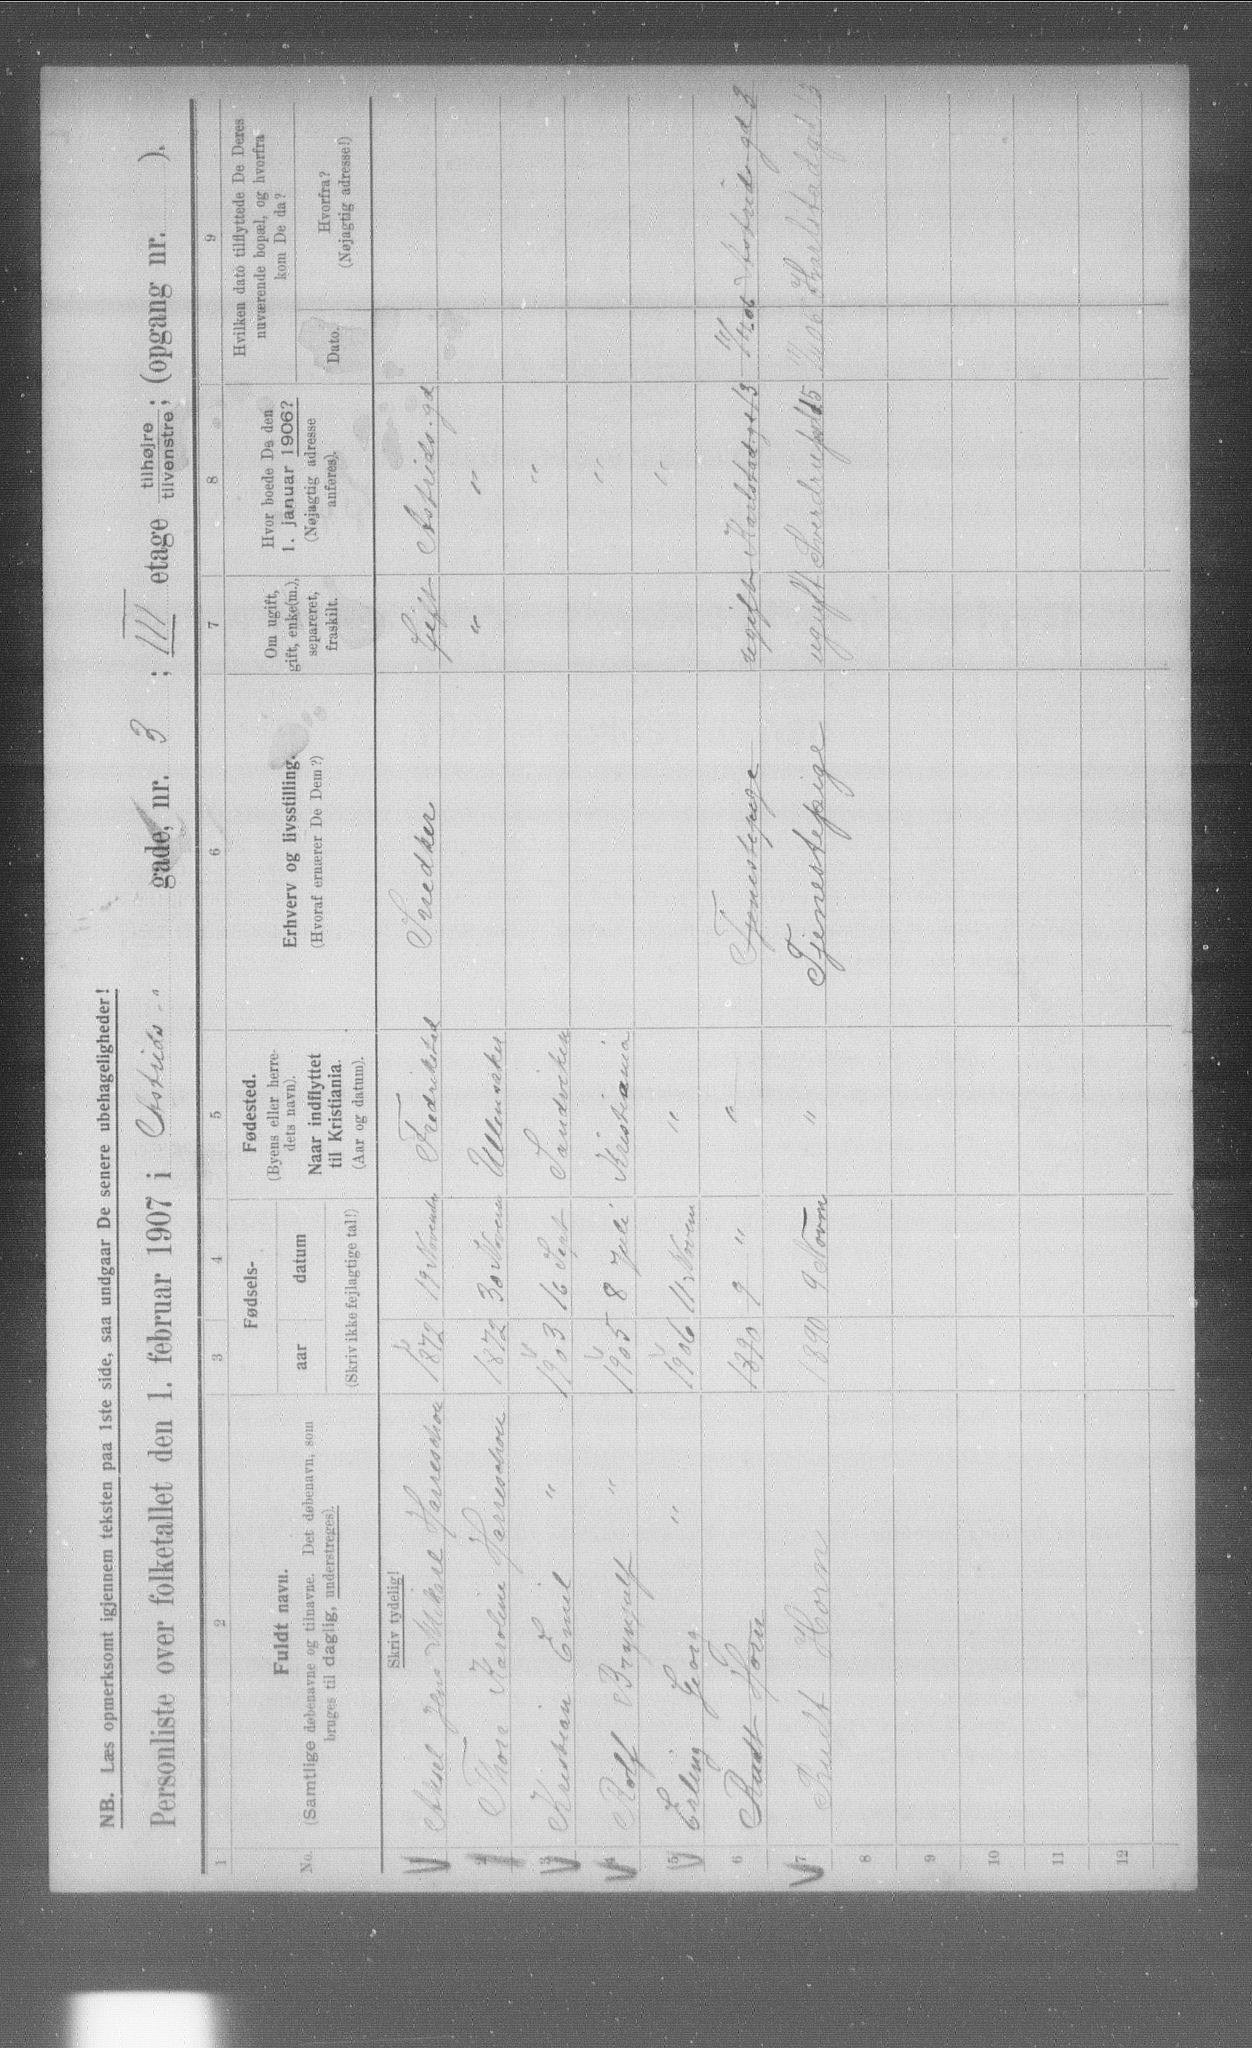 NB. Læs opmerksomt igjennem teksten paa 1ste side, saa undgaar De senere ubehageligheder!
Personliste over folketallet den 1. februar 1907 i Astrids - " gade, nr. 3 ; III etage tilhøjre / tilvenstre; (opgang nr. ).
1 2 3 4 5 6 7 8 9
No. Fuldt navn. (Samtlige døbenavne og tilnavne. Det døbenavn, som bruges til daglig, understreges).
Fødsels- aar datum (Skriv ikke fejlagtige tal!)
Fødested. (Byens eller herredets navn). Naar indflyttet til Kristiania. (Aar og datum).
Erhverv og livsstilling. (Hvoraf ernærer De Dem?)
Om ugift, gift, enke(m.), separeret, fraskilt.
Hvor boede De den 1. januar 1906? (Nøjagtig adresse anføres).
Hvilken dato tilflyttede De Deres nuværende bopæl, og hvorfra kom De da?
Dato. Hvorfra? (Nøjagtig adresse!)
Skriv tydelig!
1 Aksel Jens Mikael Harreschou 1872 19 Novembr Fredrikstad Snedker Gift Astrids.gd
2 Thora Karoline Harreschou 1872 30 Novem Ullensaker " "
3 Kristian Emil " 1903 16 Sept Sandviken "
4 Rolf Bryngulf " 1905 8 Juli Kristiania "
5 Erling Georg " 1906 11 Novem " "
6 Rudt Horn 1890 9 " " Tjenestepige ugift Karlstadgt 13 Astrids.gd 3
7 Rudt Horn 1890 9 Novm " Tjenestepige ugift Sverdrupsgt 15 Karlstadgt 13
8
9
10
11
12